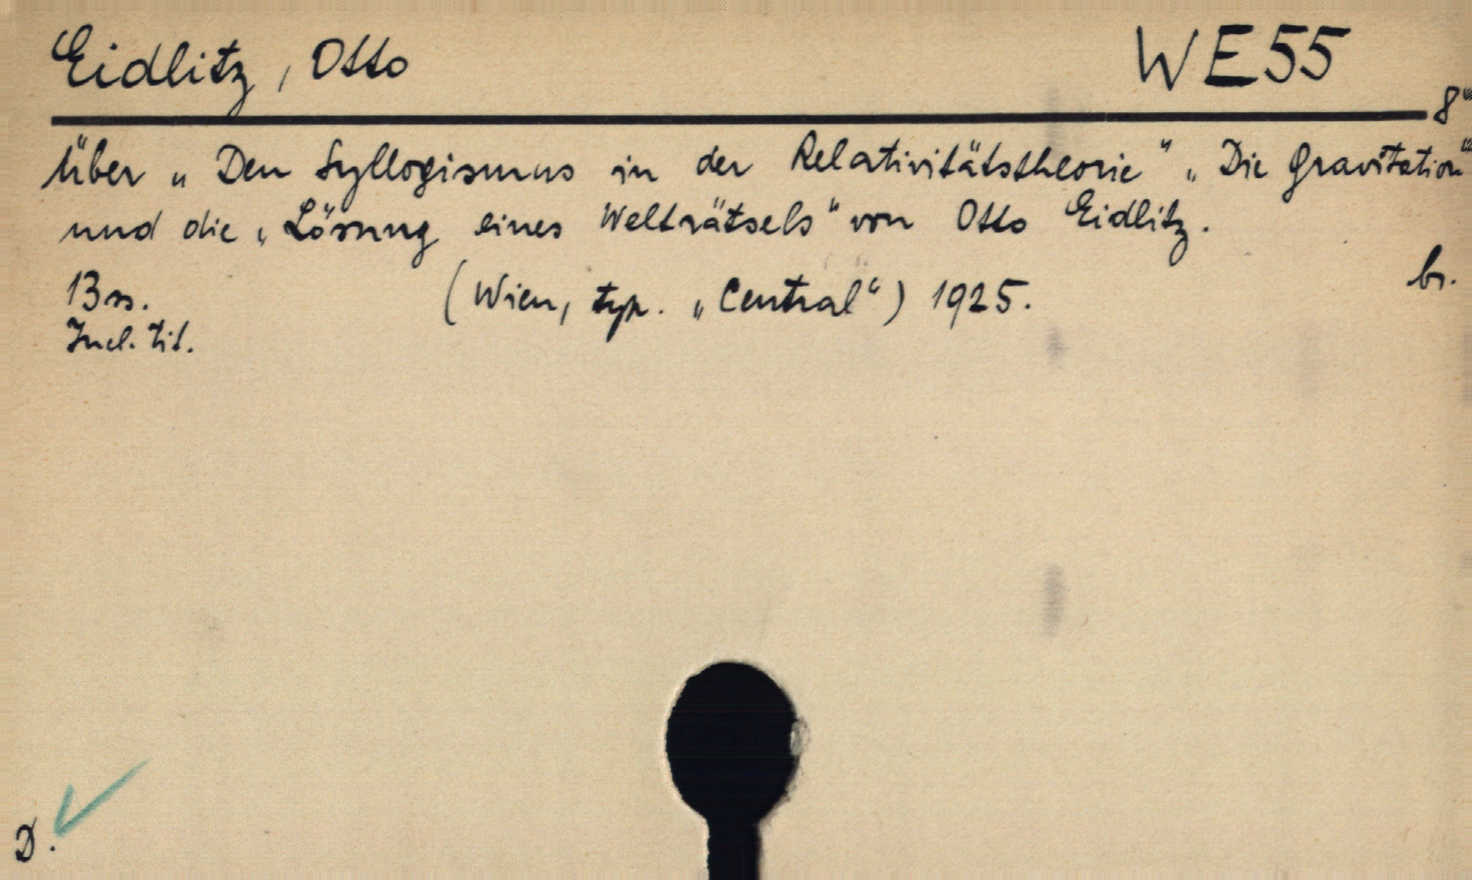 Eidlitz, Otto WE55
8°
Über „Den Syllogismus in der Relativitätstheorie" „Die Gravitation"
und die „Lösung eines Welträtsels" von Otto Eidlitz.
13 ss. (Wien, typ. „Central") 1925. br.
Incl. tit.
D.